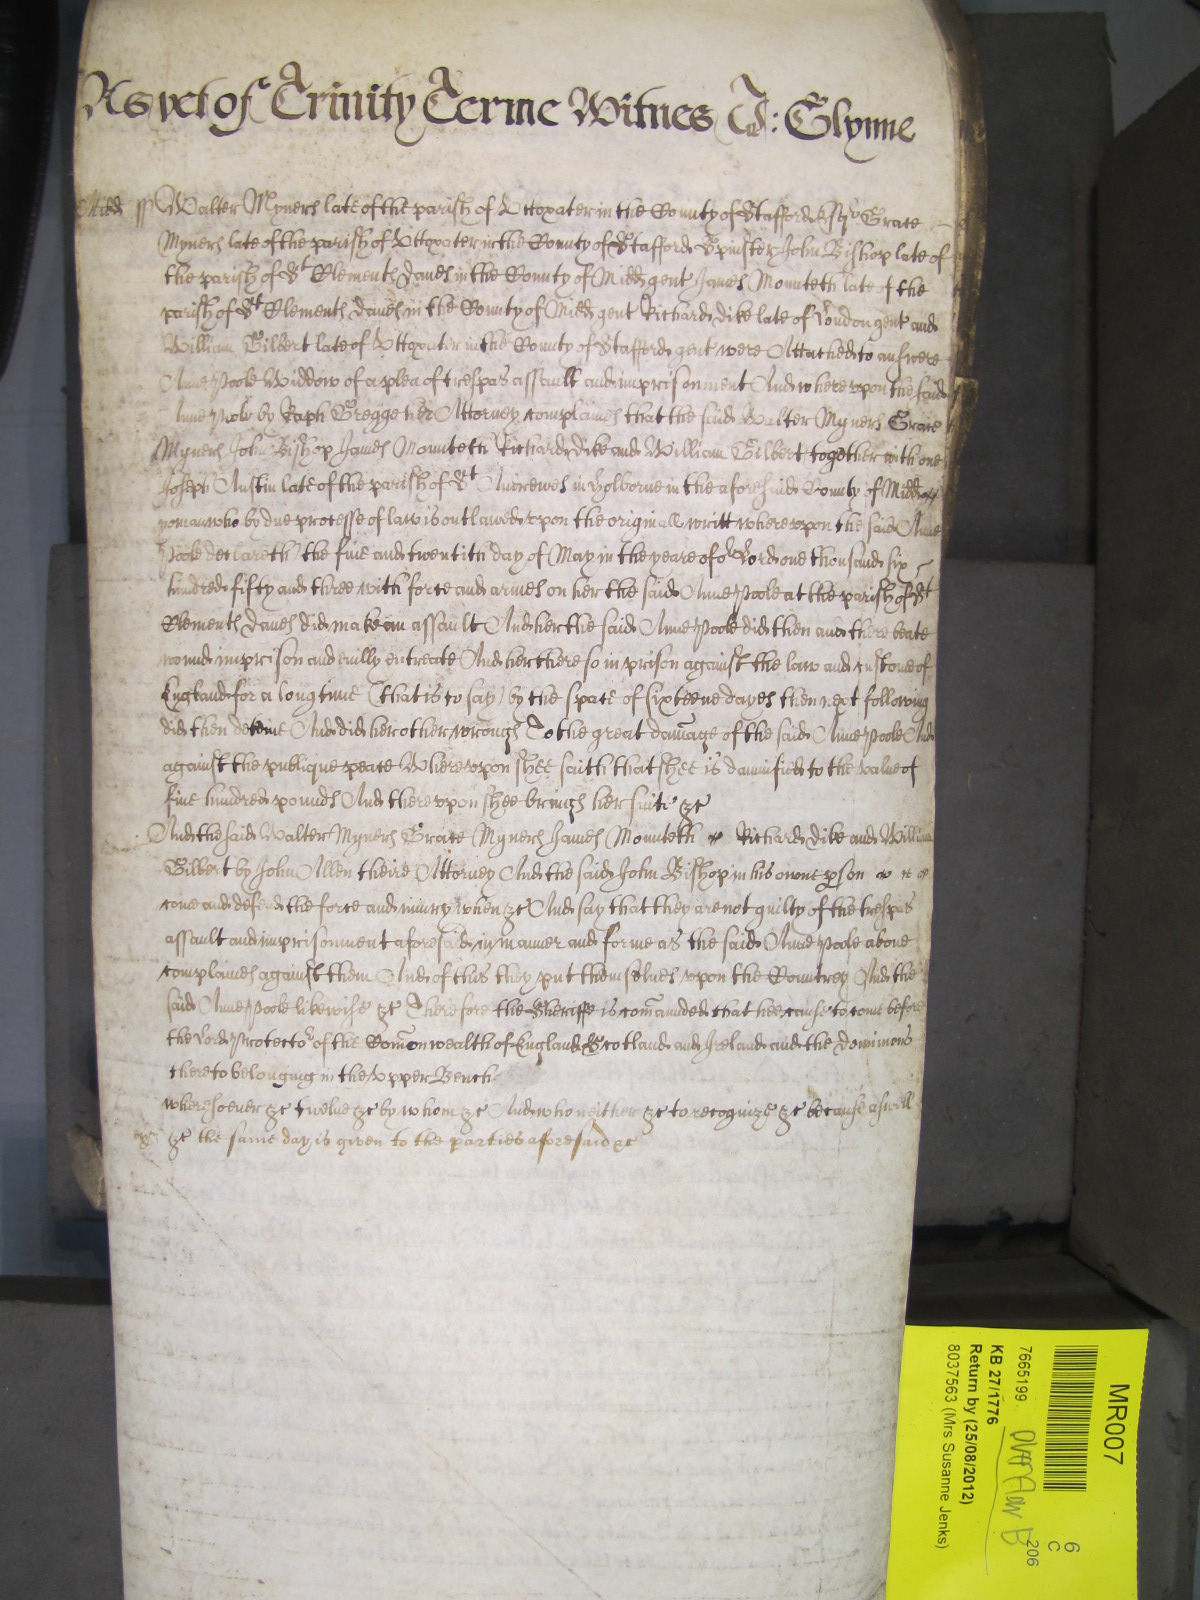 As yet of Trinity Terme Witnes J: Glynne
Midd ss Walter Myners late of the parish of Uttoxater in the County of Stafford Esqr Grace
Myners late of the parish of Uttoxater in the County of Stafford Spinster John Bishop late of
the parish of St Clements Danes in the County of Midd gent James Mounteth late of the
parish of St Clements Danes in the County of Midd gent Richard Dike late of London gent and
William Gilbert late of Uttoxater in the County of Stafford gent were Attached to answere
Anne Poole Widdow of a plea of trespas assault and imprisonment And whereupon the said
Anne Poole by Raph Gregge her Attorney complaines that the said Walter Myners Grace
Myners John Bishop James Mounteth Richard Dike and William Gilbert together with one
Joseph Austin late of the parish of St Andrewes in Holborne in the aforesaid County of Midd
yeoman who by due processe of law is outlawed upon the originall writt whereupon the said Anne
Poole declareth the five and twentith day of May in the yeare of or Lord one thousand six
hundred fifty and three with force and armes on her the said Anne Poole at the parish of St
Clements Danes did make an assault And her the said Anne Poole did then and there beate
wound imprison and evilly entreate And her there so in prison against the law and custome of
England for a long time (that is to say) by the space of sixteene dayes then next following
did then deteine And did her other wrongs To the great damage of the said Anne Poole And
against the publique peace Whereupon shee saith that shee is damnified to the value of
five hundred pounds And thereupon shee brings her suite &c
And the said Walter Myners Grace Myners James Mounteth Richard Dike and William
Gilbert by John Allen theire Attorney And the said John Bishop in his owne pson
come and defend the force and iniury when &c And say that they are not guilty of the trespas
assault and imprisonment aforesaid in manner and forme as the said Anne Poole above
complaines against them And of this they put themselves upon the Countrey And the
said Anne Poole likewise &c Therefore the Sheriffe is comanded that hee cause to come before
the Lord Protector of the Comonwealth of England Scotland and Ireland and the dominions
thereto belonging in the Upper Bench
wheresoever &c twelve &c by whom &c And who neither &c to recognize &c because aswell
&c the same day is given to the parties aforesaid &c
MR007
7665199
KB 27/1776
Return by (25/08/2012)
8037563 (Mrs Susanne Jenks)
6
C
206